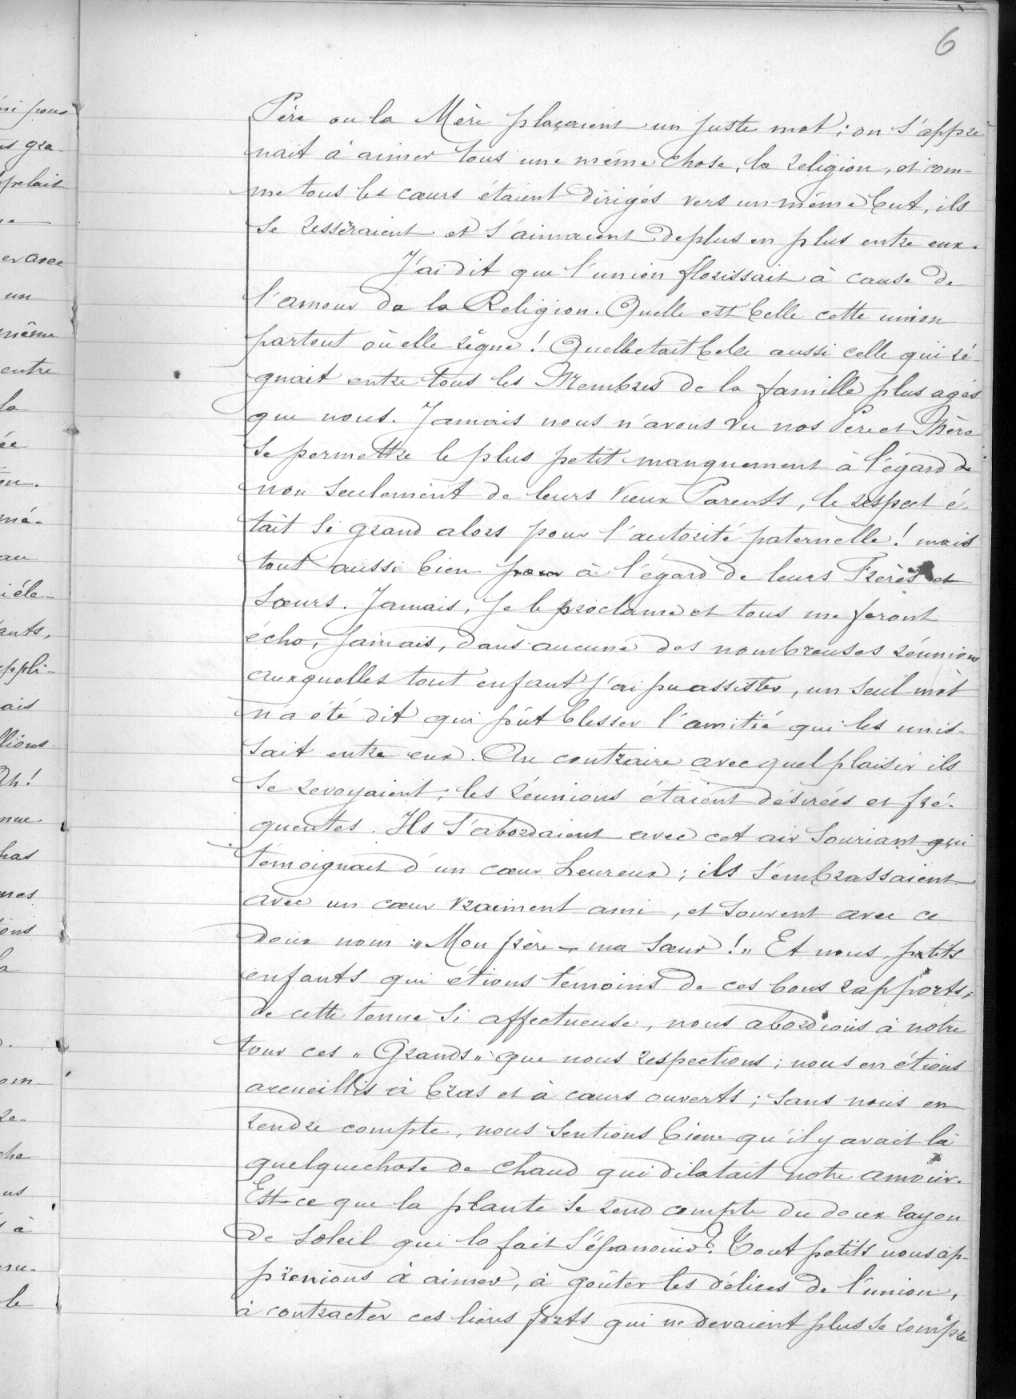 6
Père ou la Mère plaçaient un juste mot ; on s'appre
nait à aimer tous une même chose, la religion, et com-
me tous les cœurs étaient dirigés vers un même but, ils
se resseraient et s'aimaient de plus en plus entre eux.
J'ai dit que l'union florissait à cause de
l'amour de la Religion. Quelle est belle cette union
partout où elle règne ! Quelle était belle aussi celle qui ré-
gnait entre tous les Membres de la famille plus agés
que nous. Jamais nous n'avons vu nos Père et Mère
se permettre le plus petit manquement à l'égard de
non seulement de leurs vieux Parents, le respect é-
tait si grand alors pour l'autorité paternelle ! mais
tout aussi bien à l'égard de leurs Frères et
Sœurs. Jamais, je le proclame et tous me feront
écho, Jamais, dans aucune des nombreuses réunions
auxquelles tout enfant j'ai pu assister, un seul mot
n'a été dit qui pût blesser l'amitié qui les unis-
sait entre eux. Au contraire avec quel plaisir ils
se revoyaient ; les réunions étaient désirées et fré-
quentes. Ils s'abordaient avec cet air souriant qui
témoignait d'un cœur heureux ; ils s'embrassaient
avec un cœur vraiment ami, et souvent avec ce
doux nom "Mon frère - ma sœur !" Et nous, petits
enfants qui étions témoins de ces bons rapports,
de cette tenue si affectueuse, nous abordions à notre
tour ces "Grands" que nous respections ; nous en étions
accueillis à bras et à cœurs ouverts ; sans nous en
rendre compte, nous sentions bien qu'il y avait là
quelquechose de chaud qui dilatait notre amour.
Est-ce que la plante se rend compte du doux rayon
de soleil qui la fait s'épanouir ? Tout petits nous ap-
prenions à aimer, à goûter les délices de l'union,
à contracter ces liens forts qui ne devaient plus se rompre